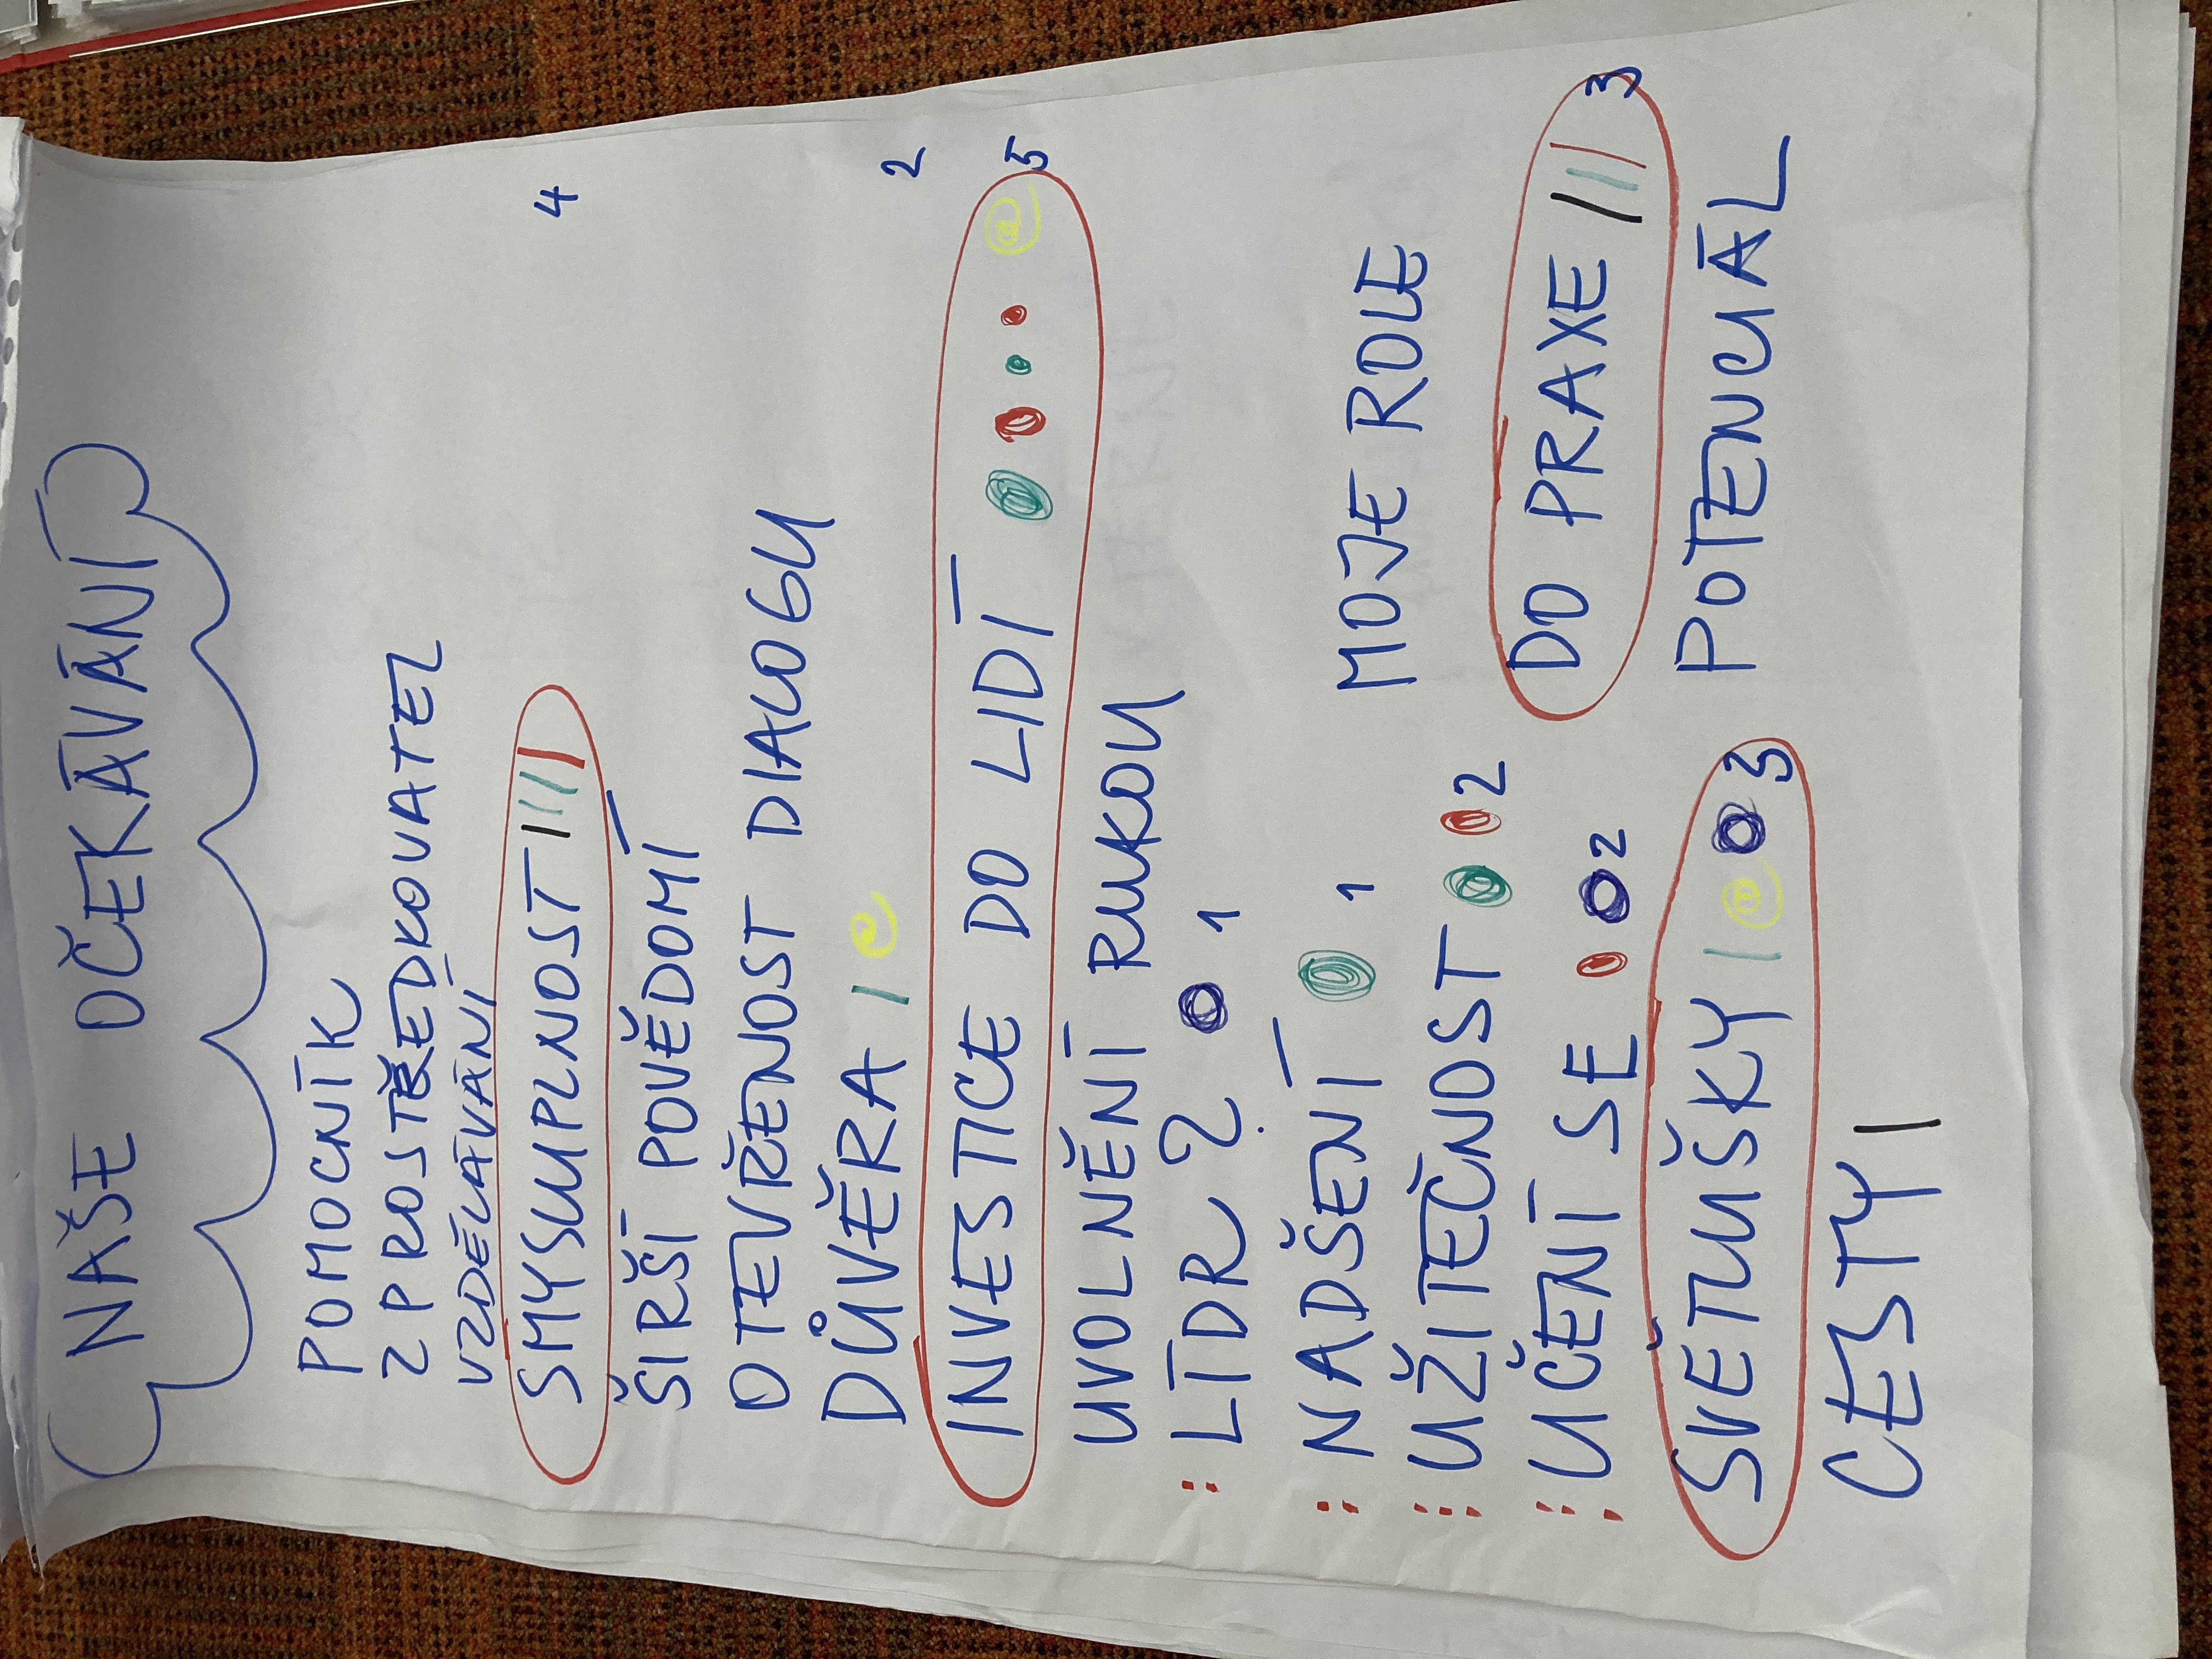 NAŠE OČEKÁVÁNÍ
POMOCNÍK
ZPROSTŘEDKOVATEL
VZDĚLÁVÁNÍ
SMYSUPLNOST 4
ŠIRŠÍ POVĚDOMÍ
OTEVŘENOST DIALOGU
DŮVĚRA 2
INVESTICE DO LIDÍ 5
UVOLNĚNÍ RUKOU
LÍDR ? 1
NADŠENÍ 1 MOJE ROLE
UŽITEČNOST 2
UČENÍ SE 2 DO PRAXE 3
SVĚTUŠKY 3 POTENCIÁL
CESTY